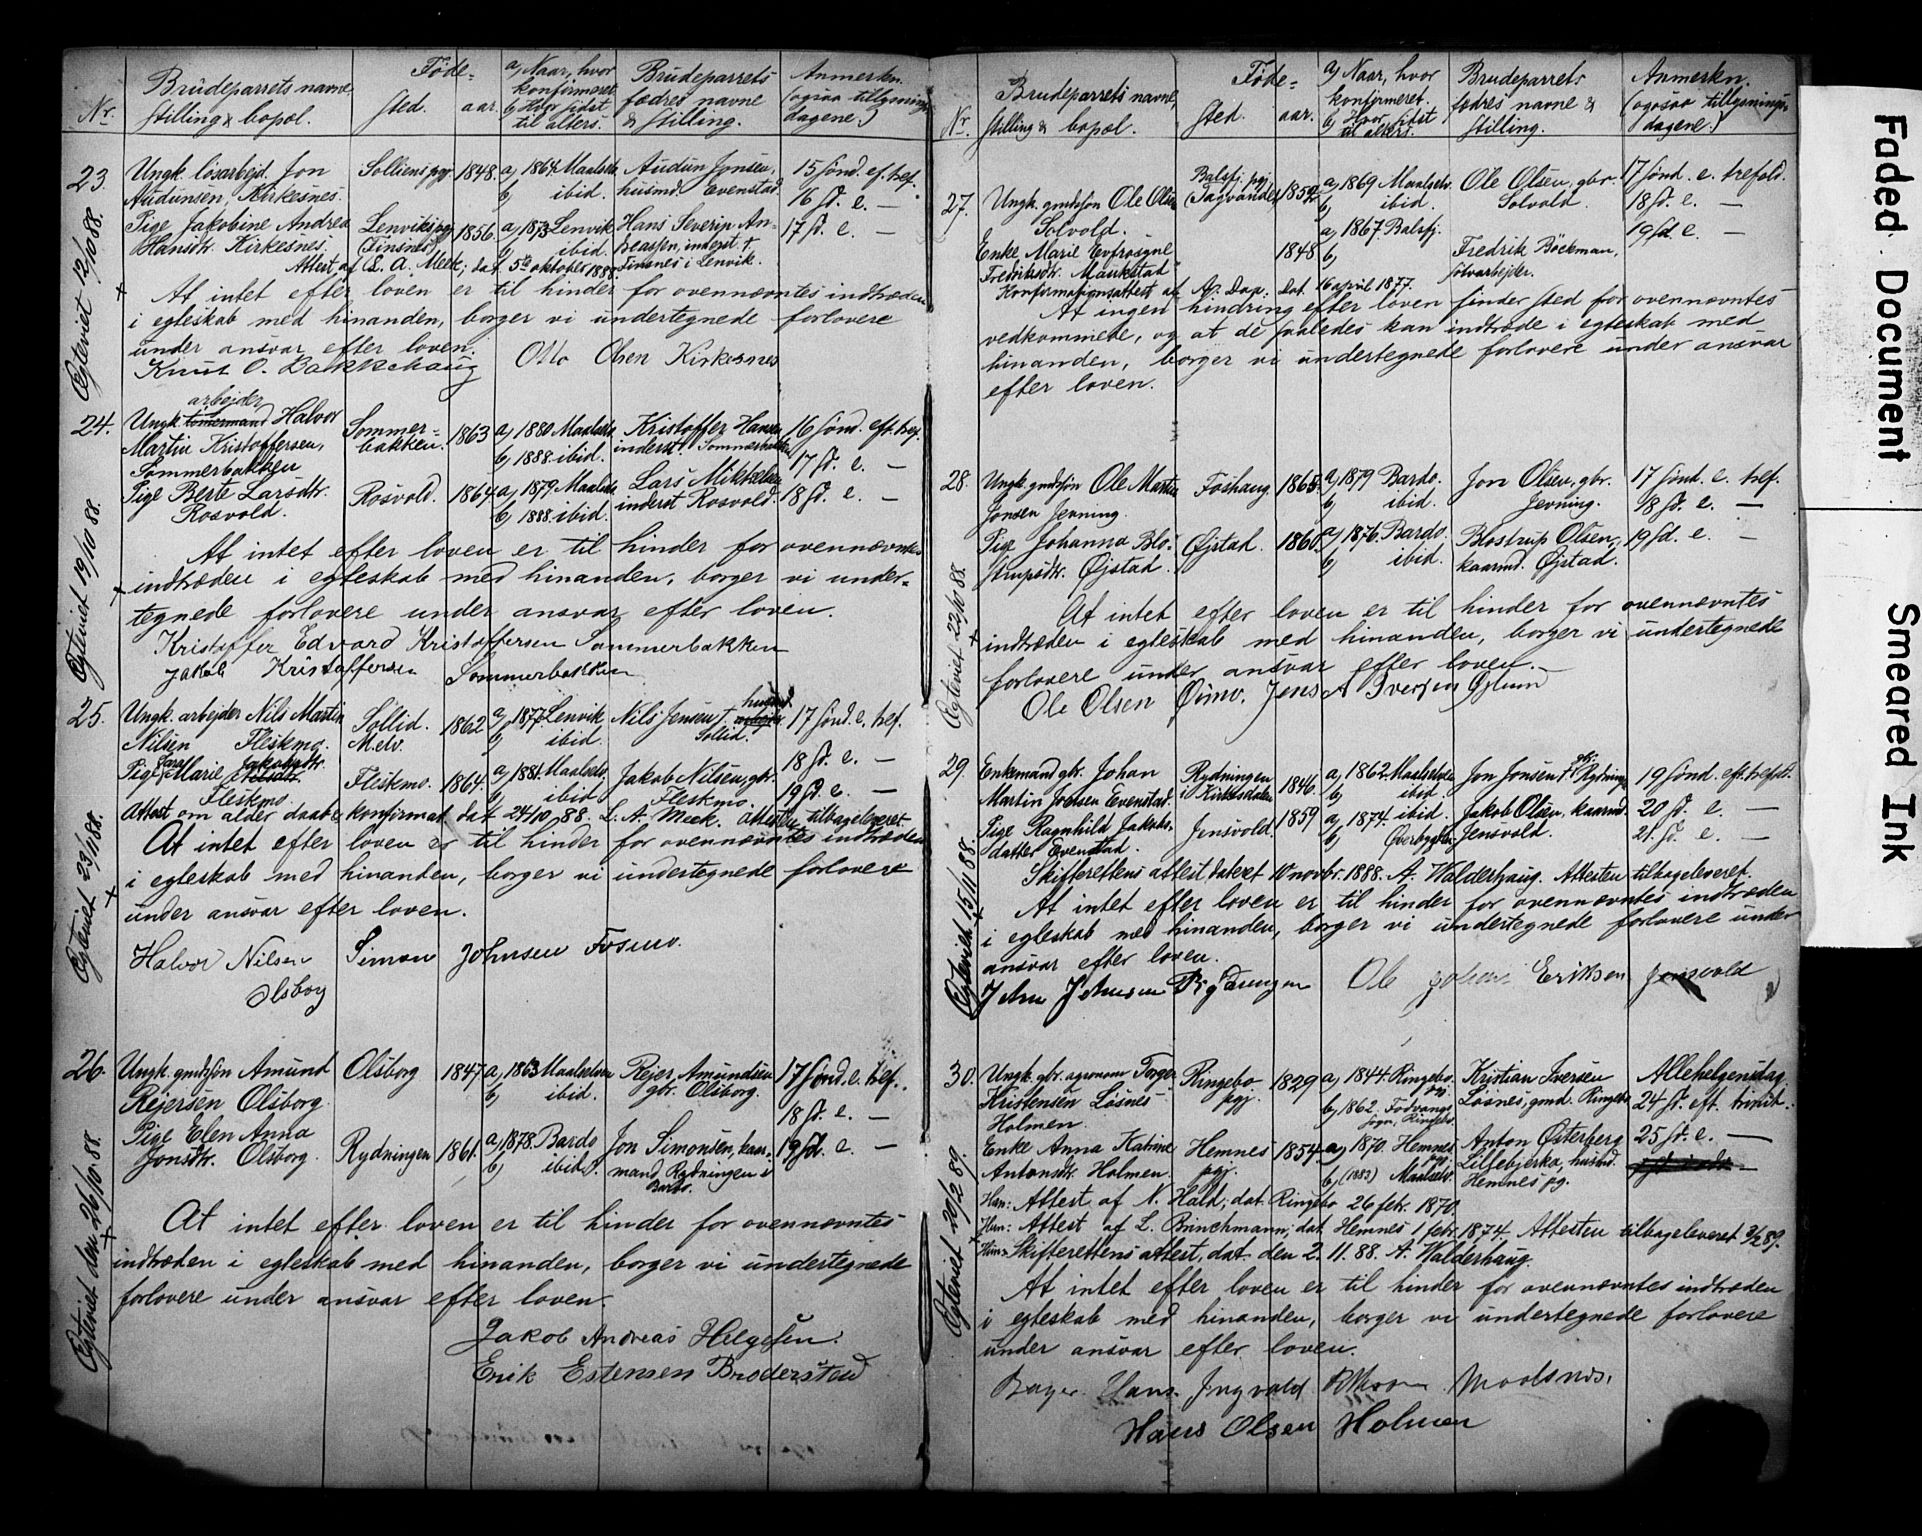 Nr. Brudeparrets navne, stilling & bopæl. Føde- sted. aar. a, Naar, hvor konfirmeret. b, Hvor sidst til alters. Brudeparrets fædres navne & stilling. Anmerkn. (ogsaa tillysnings dagene.)
23. Ungk. løsarbejd. Jon Solliens pgj. 1848. a, 1864 Maalselv. Audun Jonsen, 15 sønd. ef. tref.
Audunsen, Kirkesnes. b, ibid. husmd. Evenstad. 16 sd. e. —
Pige Jakobine Andrea Lenviks pgj. 1856. a, 1873 Lenvik Hans Severin An- 17 sd. e. —
Hansdtr. Kirkesnes. (Finsnes) b, ibid. dreassen, inderst. †.
Attest af L. A. Meek, dat. 5te oktober 1888. Finsnes i Lenvik.
At intet efter loven er til hinder for ovennævntes indtræden
i egteskab med hinanden, borger vi undertegnede forlovere
under ansvar efter loven.
Knut O. Bakkehaug Otto Olsen Kirkesnes
Egteviet 12/10 88.
arbejder
24. Ungk. tømermand Halvor Sommer- 1863 a, 1880 Maalselv. Kristoffer Hansen 16 sønd. eft. tref.
Martin Kristoffersen, bakken. b, 1888. ibid. inderst. Sommerbakken 17 sd. e. —
Sommerbakken
Pige Berte Larsdtr. Rosvold. 1864 a, 1879 Maalselv. Lars Mikkelsen 18 sd. e. —
Rosvold. b, 1888. ibid. inderst Rosvold.
At intet efter loven er til hinder for ovennævntes
indtræden i egteskab med hinanden, borger vi under-
tegnede forlovere under ansvar efter loven.
Kristoffer Edvard Kristoffersen Sommerbakken
Jakob Kristoffersen Sommerbakken
Egteviet 19/10 88.
25. Ungk. arbejder Nils Martin Sollid. 1862 a, 1877 Lenvik Nils Jensen † husmd. 17 sønd. e. tref.
Nilsen Fleskmo. Melv. b, ibid. Sollid. 18 sd. e. —
Pige Sara Marie Jakobsdtr. Fleskmo. 1864. a, 1881. Maalselv. Jakob Nilsen, gbr. 19 sd. e. —
Fleskmo. b, ibid Fleskmo.
Attest om alder daab & konfirmat. dat. 24/10 88. L. A. Meek. Attesten tilbageleveret
At intet efter loven er til hinder for ovennævntes indtræden
i egteskab med hinanden, borger vi undertegnede forlovere
under ansvar efter loven.
Halvor Nilsen Simon Johnsen Fosmo.
Olsborg
Egteviet 23/11 88.
26. Ungk. grndsøn Amund Olsborg 1847 a, 1863 Maalselven Rejer Amundsen 17 sønd. e. tref.
Rejersen Olsborg. b, ibid. gbr. Olsborg. 18 sd. e. —
Pige Elen Anna
Jonsdtr. Olsborg. Rydningen 1861. a, 1878. Bardo Jon Simonsen, kaar- 19 sd. e. —
b, ibid. mand, Rydningen i
Bardo.
At intet efter loven er til hinder for ovennævntes
indtræden i egteskab med hinanden, borger vi undertegnede
forlovere under ansvar efter loven.
Jakob Andreas Helgesen.
Erik Estensen Brodersted
Egteviet den 26/10 88.
Nr. Brudeparrets navne, stilling & bopæl. Føde- sted. aar. a, Naar, hvor konfirmeret. b, Hvor sidst til alters. Brudeparrets fædres navne & stilling. Anmerkn. (ogsaa tillysnings- dagene.)
27. Ungk. grndsøn Ole Olsen Balsfj. pgj. (Tagvandet) 1852 a, 1869 Maalselv. Ole Olsen, gbr. 17 sønd. e. trefold.
Solvold. b, ibid. Solvold. 18 sd. e. —
Enke Marie Eufrosyne 1848 a, 1867. Balsfj. Fredrik Böckman, 19 sd. e. —
Fredriksdtr. Maukstad b, sølvarbejder.
Konfirmationsattest af dat. 16 april 1877.
At ingen hindring efter loven finder sted for ovennævntes
vedkommende, og at de saaledes kan indtræde i egteskab med
hinanden, borger vi undertegnede forlovere under ansvar
efter loven.
28. Ungk. grndsøn Ole Martin Foshaug. 1865. a, 1879 Bardo. Jon Olsen, gbr. 17 sønd. e. tref.
Jonsen Jerning. b, ibid. Jerning. 18 sd. e. —
Pige Johanna Blo- Øjstad. 1860. a, 1876. Bardo. Blostrup Olsen, 19 sd. e. —
strupsdtr. Øjstad. b, ibid. kaarmd. Øjstad.
At intet efter loven er til hinder for ovennævntes
indtræden i egteskab med hinanden, borger vi undertegnede
forlovere under ansvar efter loven.
Ole Olsen Jens A Iversen
Egteviet 22/10 88.
29. Enkemand gbr. Johan Rydningen 1846. a, 1862 Maalselven Jon Jonsen † gbr. Rydningen 19 sønd. eft. trefold.
Martin Jonsen Evenstad. i Kirkesdalen b, ibid. 20 sd. e. —
Pige Ragnhild Jakobs- Jensvold. 1859 a, 1874. ibid. Jakob Olsen, kaarmd. 21. sd. e. —
datter Evenstad. b, Øverbygden Jensvold.
Skifterettens attest dateret 10 novbr. 1888. A. Walderhaug. Attesten tilbageleveret.
At intet efter loven er til hinder for ovennævntes indtræden
i egteskab med hinanden, borger vi undertegnede forlovere under
ansvar efter loven.
John Johnsen Rydningen Ole Johan Eriksen Jensvold
Egteviet 15/11 88.
30. Ungk. gbr. agronom Torger Ringebo 1829 a, 1844. Ringebo Kristian Iversen Allehelgensdag.
Kristensen Løsnes pgj. pgj. Løsnes, grmd. Ringebo 24 sd. eft. trinit.
Holmen. b, 1862. Fodvangs sogn, Ringebo.
Enke Anna Katrine Hemnes 1854 a, 1870. Hemnes pgj. Anton Østerberg 25 sd. e. —
Antonsdtr. Holmen pgj. b, (1883) Maalselv. Lillebjerka, husmd. Hemnes pg.
Han: Attest af N. Hald, dat. Ringebo 26 febr. 1870.
Hun: Attest af L. Brinchmann, dat. Hemnes 1 febr. 1874. Attesten tilbageleveret 3/2 89.
Hun: Skifterettens attest, dat. den 2. 11. 88. A. Walderhaug.
At intet efter loven er til hinder for ovennævntes indtræden
i egteskab med hinanden, borger vi undertegnede forlovere
under ansvar efter loven.
Hans Ingvald Moolsnes.
Hans Olsen Holmen
Egteviet 20/2 89.
Faded Document
Smeared Ink